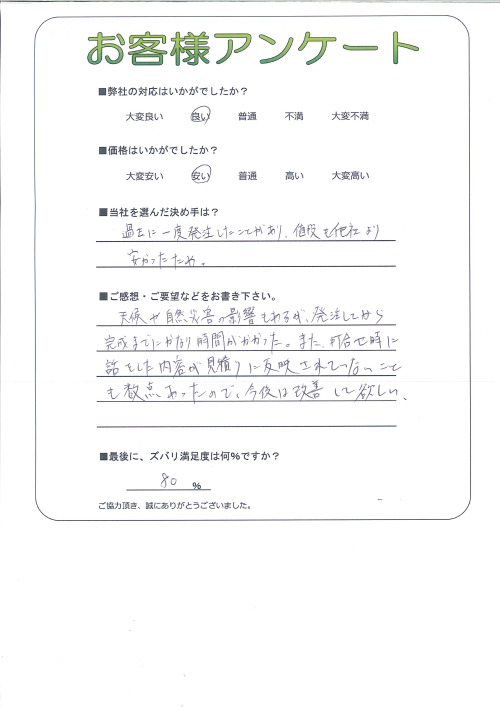 お客様アンケート
■弊社の対応はいかがでしたか？
大変良い 良い 普通 不満 大変不満
■価格はいかがでしたか？
大変安い 安い 普通 高い 大変高い
■当社を選んだ決め手は？
過去に一度発生したことがあり、値段も他社より
安かったため。
■ご感想・ご要望などをお書き下さい。
天候や自然災害の影響もあるが、発注してから
完成までにかなり時間がかかった。また、打合せ時に
話をした内容が見積りに反映されていないこと
も数点あったので、今後は改善して欲しい。
■最後に、ズバリ満足度は何%ですか？
80 %
ご協力頂き、誠にありがとうございました。